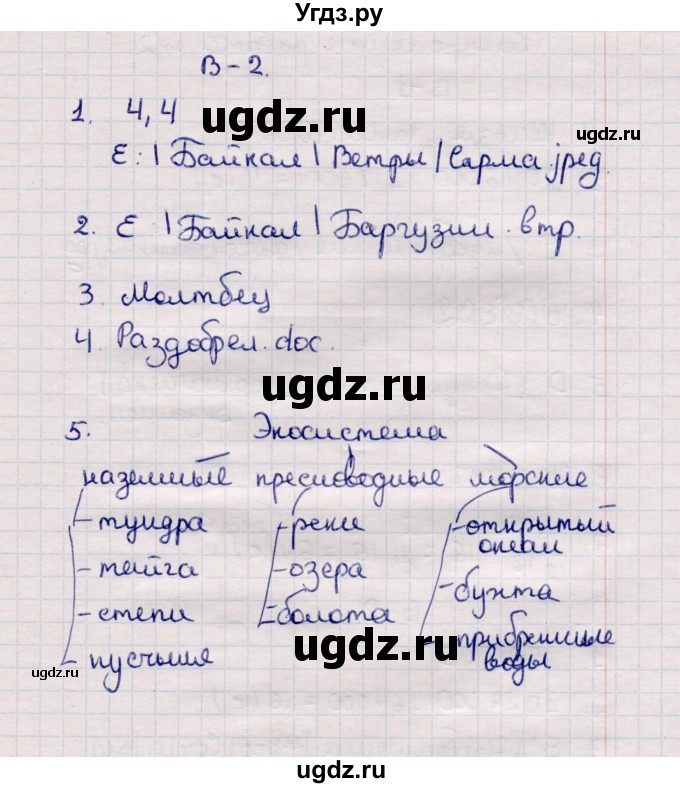 Угдз.ру
В-2.
1. 4, 4
ugdz.ru
E:|Байкал|Ветры|Сарма.jpeg.
2. E:|Байкал|Баргузин.втр.
3. Молтбец
4. Раздобрел.doc.
ugdz.ru
5. Экосистема
наземные пресноводные морские
- тундра - реки - открытый океан
- тайга - озера - бухта
- степи - болота - прибрешные воды
ugdz.ru
- пустыня
ugdz.ru
ugdz.ru